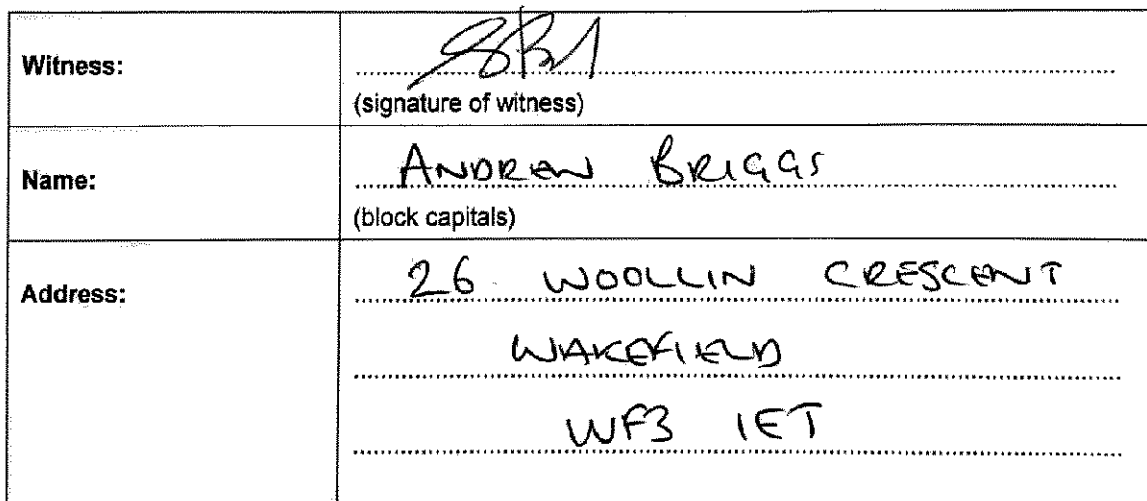 Witness:
(signature of witness)
Name:
ANDREW BRIGGS
(block capitals)
Address:
26 WOOLLIN CRESCENT
WAKEFIELD
WF3 1ET